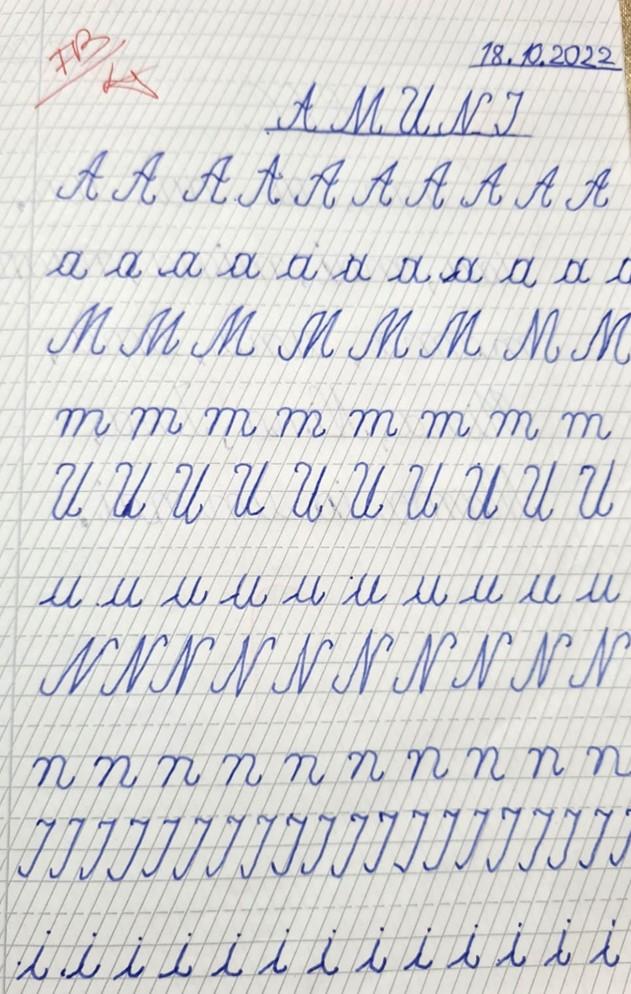 FB
18.10.2022
A M U N I
A A A A A A A A A A
a a a a a a a a a a a
M M M M M M M M
m m m m m m m m
U U U U U U U U U U
u u u u u u u u u u
N N N N N N N N N N
n n n n n n n n n n
I I I I I I I I I I I I I I I I I I I I
i i i i i i i i i i i i i